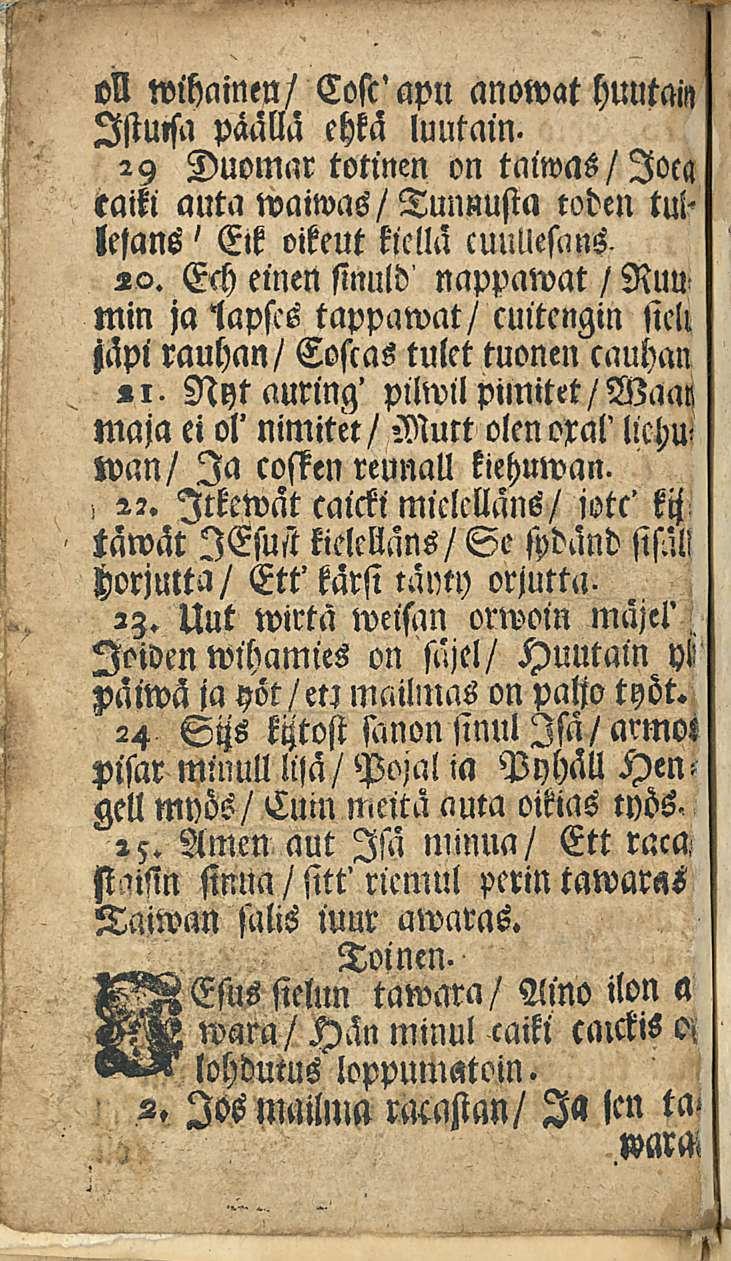 oll wihainen/ Cosc' apu anowat huutain
Istuisa päällä ehkä luutain.
29 Duomar totinen on taiwas/ Joca
caiki auta waiwas/ Tunnusta toden tul-
lesans/ Eik oikeut kiellä cuullesans.
20. Ech einen sinuld' nappawat/ Ruu-
min ja lapses tappawat/ cuitengin siel
jäpi rauhan/ Coscas tulet tuonen cauhan
21. Nyt auring' pilwil pimitet/ Waan
maja ei ol' nimitet/ Mutt olen oxal' liehu-
wan/ Ja cosken reunall kiehuwan.
22. Itkewät caicki mielelläns/ jotc' kij-
täwät JEsust kielelläns/ Se sydänd sisäll
horjutta/ Ett' kärsi täyty orjutta.
23. Uut wirtä weisan orwoin mäjel'
Joiden wihamies on säjel/ Huutain yli
päiwä ja yöt/ etz mailmas on paljo työt.
24 Sijs kijtost sanon sinul Isä/ armos
pisar minull lisä/ Pojal ia Pyhäll Hen-
gell myös/ Cuin meitä auta oikias työs.
25. Amen aut Isä minua/ Ett raca-
staisin sinua/ sitt' riemul perin tawaras
Taiwan salis juur awaras.
Toinen.
JEsus sielun tawara/ Aino ilon a
wara/ Hän minul caiki caickis o
lohdutus loppumatoin.
2. Jos mailma racastan/ Ja sen ta-
wara